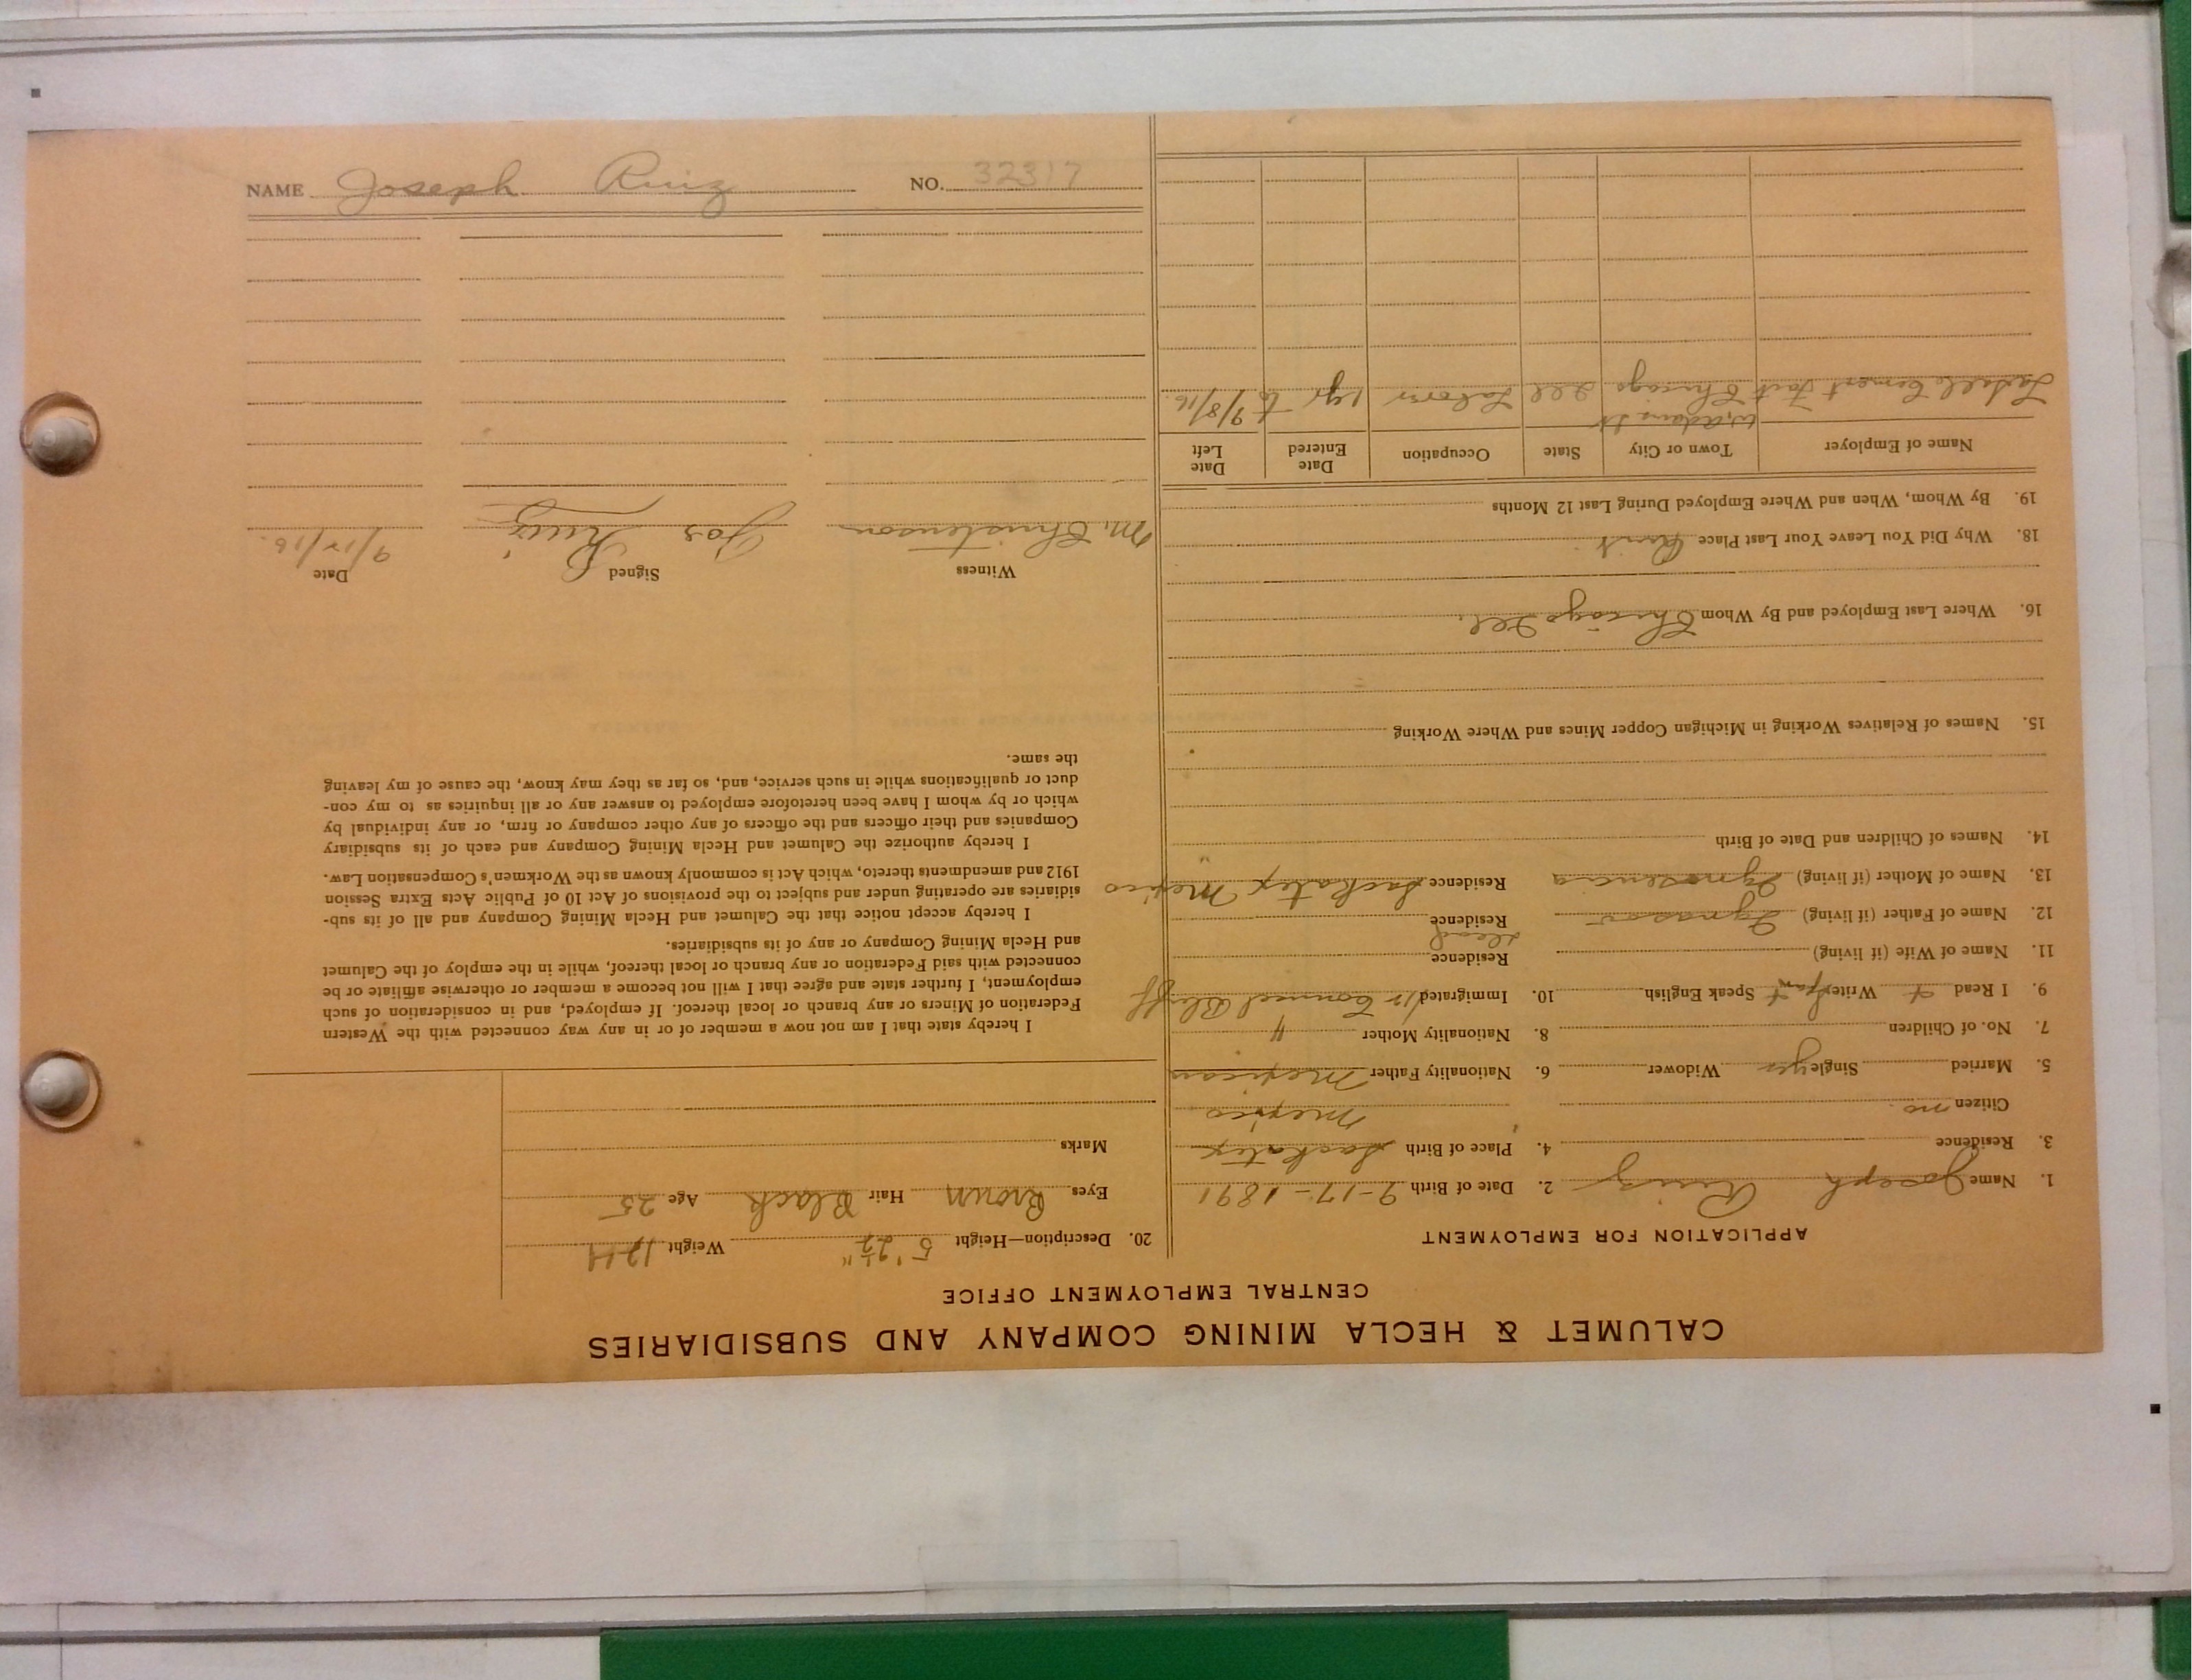 NAME Joseph Ruiz NO. 32317
CALUMET & HECLA MINING COMPANY AND SUBSIDIARIES
CENTRAL EMPLOYMENT OFFICE
APPLICATION FOR EMPLOYMENT
1. Name Joseph Ruiz 2. Date of Birth 9-17-1891
3. Residence 4. Place of Birth Sackatex
Citizen no Mexico
5. Married Single yes Widower 6. Nationality Father Mexican
7. No. of Children 8. Nationality Mother "
9. I Read Write Speak English 10. Immigrated
11. Name of Wife (if living) Residence
12. Name of Father (if living) Residence dead
13. Name of Mother (if living) Residence Sackatex Mexico
14. Names of Children and Date of Birth
15. Names of Relatives Working in Michigan Copper Mines and Where Working
16. Where Last Employed and By Whom Chicago Ill.
18. Why Did You Leave Your Last Place
19. By Whom, When and Where Employed During Last 12 Months
Name of Employer Town or City State Occupation Date Entered Date Left
W. Adams St
Cement Chicago Ill Labor 1 yr to 9/8/16.
20. Description—Height 5' 2½" Weight
Eyes Brown Hair Black Age 25
Marks
I hereby state that I am not now a member of or in any way connected with the Western
Federation of Miners or any branch or local thereof. If employed, and in consideration of such
employment, I further state and agree that I will not become a member or otherwise affiliate or be
connected with said Federation or any branch or local thereof, while in the employ of the Calumet
and Hecla Mining Company or any of its subsidiaries.
I hereby accept notice that the Calumet and Hecla Mining Company and all of its sub-
sidiaries are operating under and subject to the provisions of Act 10 of Public Acts Extra Session
1912 and amendments thereto, which Act is commonly known as the Workmen's Compensation Law.
I hereby authorize the Calumet and Hecla Mining Company and each of its subsidiary
Companies and their officers and the officers of any other company or firm, or any individual by
which or by whom I have been heretofore employed to answer any or all inquiries as to my con-
duct or qualifications while in such service, and, so far as they may know, the cause of my leaving
the same.
Witness Signed Date
M. Christenson Jos Ruiz